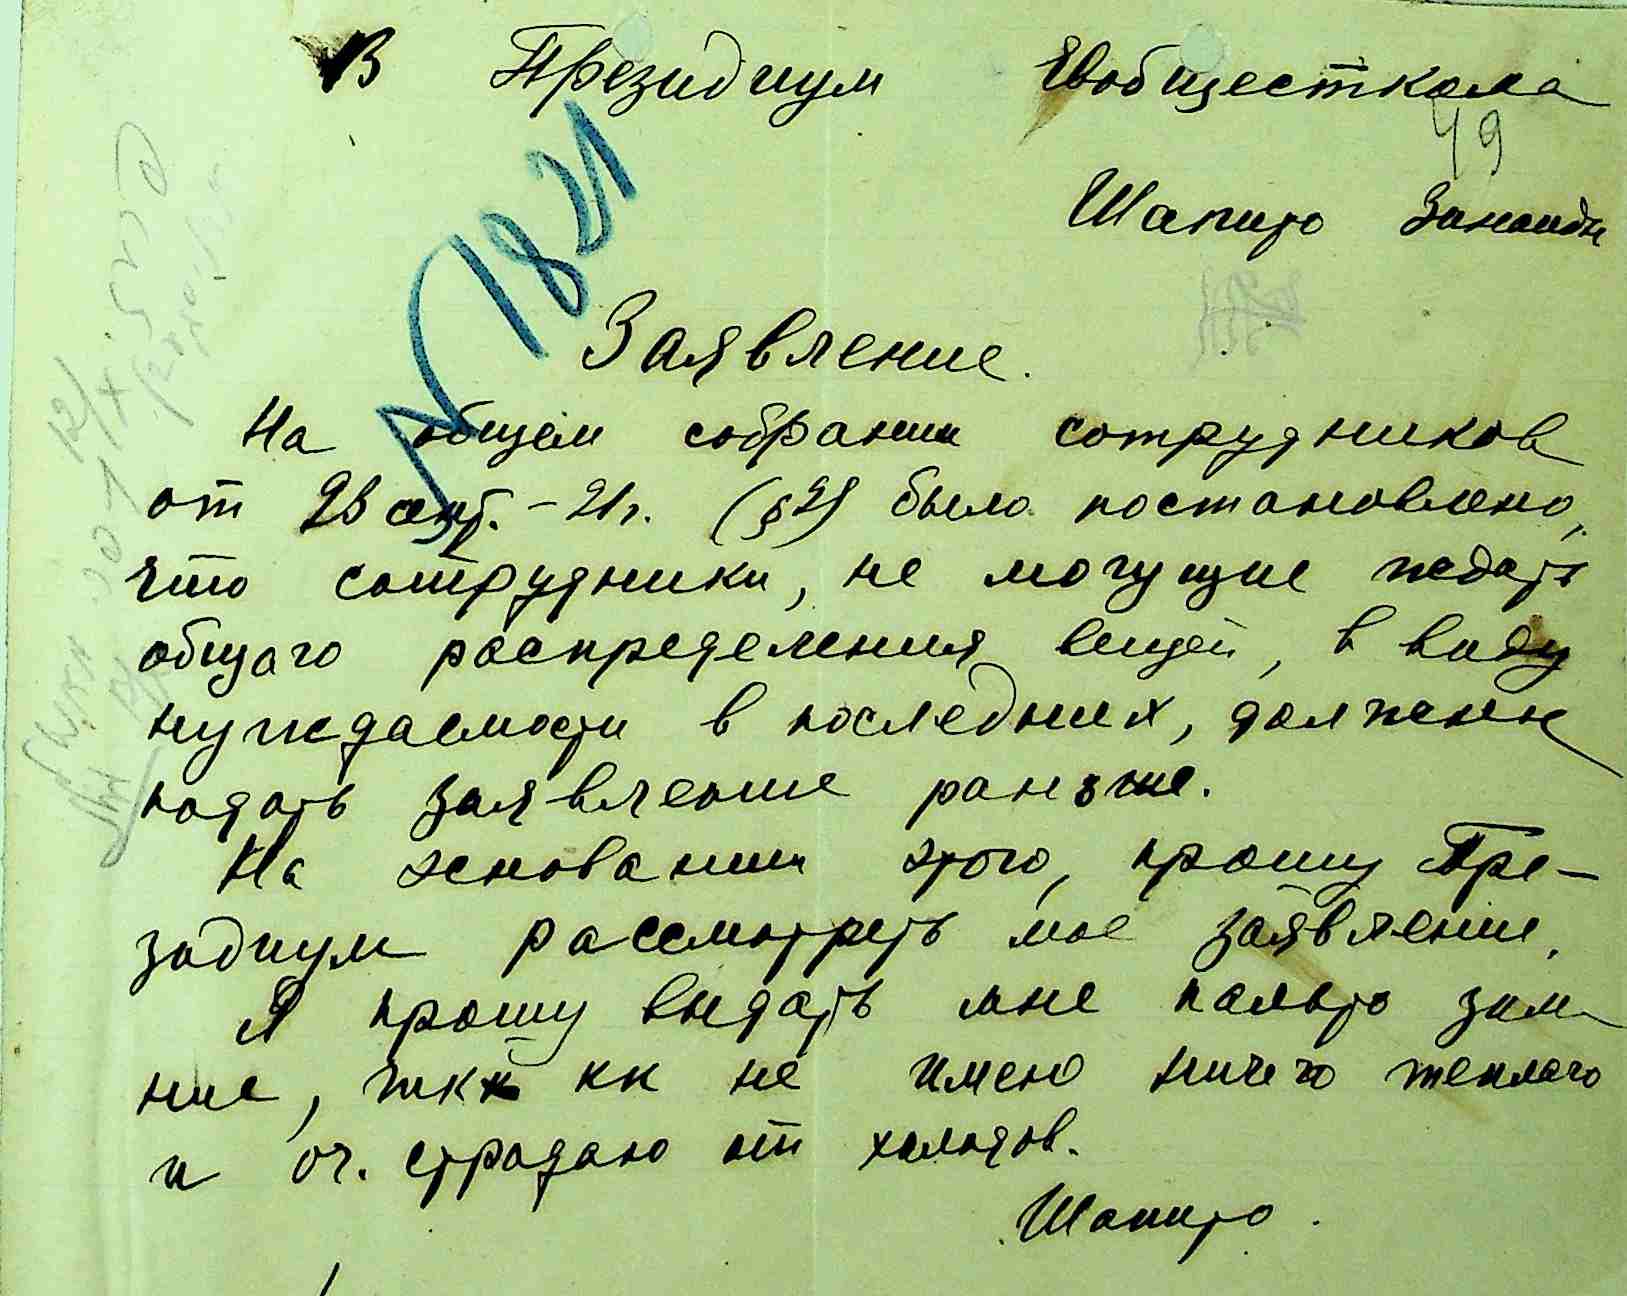 В Президиум Евобщесткома
49
Шапиро Зинаиды
N 1821
Заявление.
На общем собрании сотрудников
от 23 сент. – 21 г. (§ 2) было постановлено,
что сотрудники, не могущие ждать
общаго распределения вещей, в виду
нуждаемости в последних, должны
подать заявление раньше.
На основании этого, прошу Пре–
зидиум рассмотреть мое заявление.
Я прошу выдать мне пальто зим–
ние, тк кк не имею ничего теплаго
и оч. страдаю от холодов.
Шапиро.